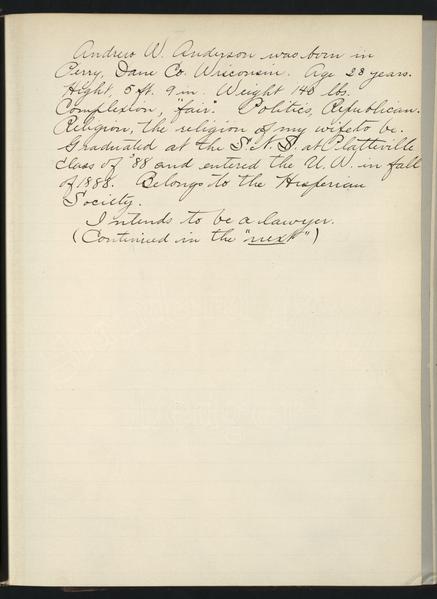 Andrew W. Anderson was born in
Perry, Dane Co. Wisconsin. Age 23 years.
Hight, 5 ft. 9 in. Weight 148 lbs.
Complexion, "fair". Politics, Republican.
Religion, the religion of my wife to be.
Graduated at the S. N. S. at Platteville
class of '88 and entered the U. W. in fall
of 1888. Belongs to the Hesperian
Society.
Intends to be a lawyer.
(Continued in the "next")